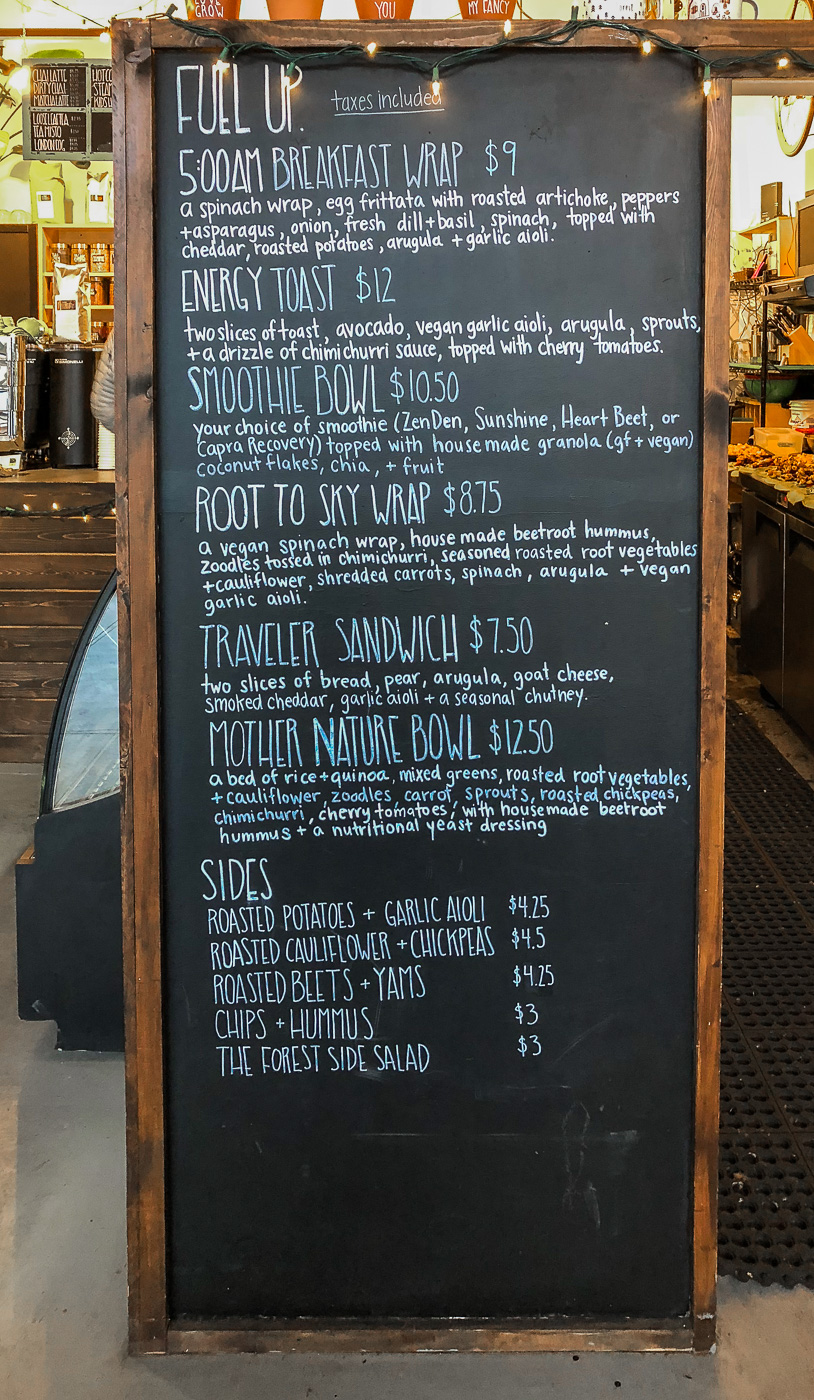 YOU
MY FANCY
GROW
CHAI LATTE
DIRTY CHAI
MATCHA LATTE
LOOSE LEAF TEA
TEA MISTO
LONDON FOG
FUEL UP.
taxes included
5:00AM BREAKFAST WRAP $9
a spinach wrap, egg frittata with roasted artichoke, peppers
+asparagus, onion, fresh dill+basil, spinach, topped with
cheddar, roasted potatoes, arugula + garlic aioli.
ENERGY TOAST $12
two slices of toast, avocado, vegan garlic aioli, arugula, sprouts,
+ a drizzle of chimichurri sauce, topped with cherry tomatoes.
SMOOTHIE BOWL $10.50
your choice of smoothie (Zen Den, Sunshine, Heart Beet, or
Capra Recovery) topped with house made granola (gf + vegan)
coconut flakes, chia, + fruit
ROOT TO SKY WRAP $8.75
a vegan spinach wrap, house made beetroot hummus,
zoodles tossed in chimichurri, seasoned roasted root vegetables
+cauliflower, shredded carrots, spinach, arugula + vegan
garlic aioli.
TRAVELER SANDWICH $7.50
two slices of bread, pear, arugula, goat cheese,
smoked cheddar, garlic aioli + a seasonal chutney.
MOTHER NATURE BOWL $12.50
a bed of rice+quinoa, mixed greens, roasted root vegetables,
+ cauliflower, zoodles, carrot, sprouts, roasted chickpeas,
chimichurri, cherry tomatoes, with housemade beetroot
hummus + a nutritional yeast dressing
SIDES
ROASTED POTATOES + GARLIC AIOLI $4.25
ROASTED CAULIFLOWER + CHICKPEAS $4.5
ROASTED BEETS + YAMS $4.25
CHIPS + HUMMUS $3
THE FOREST SIDE SALAD $3